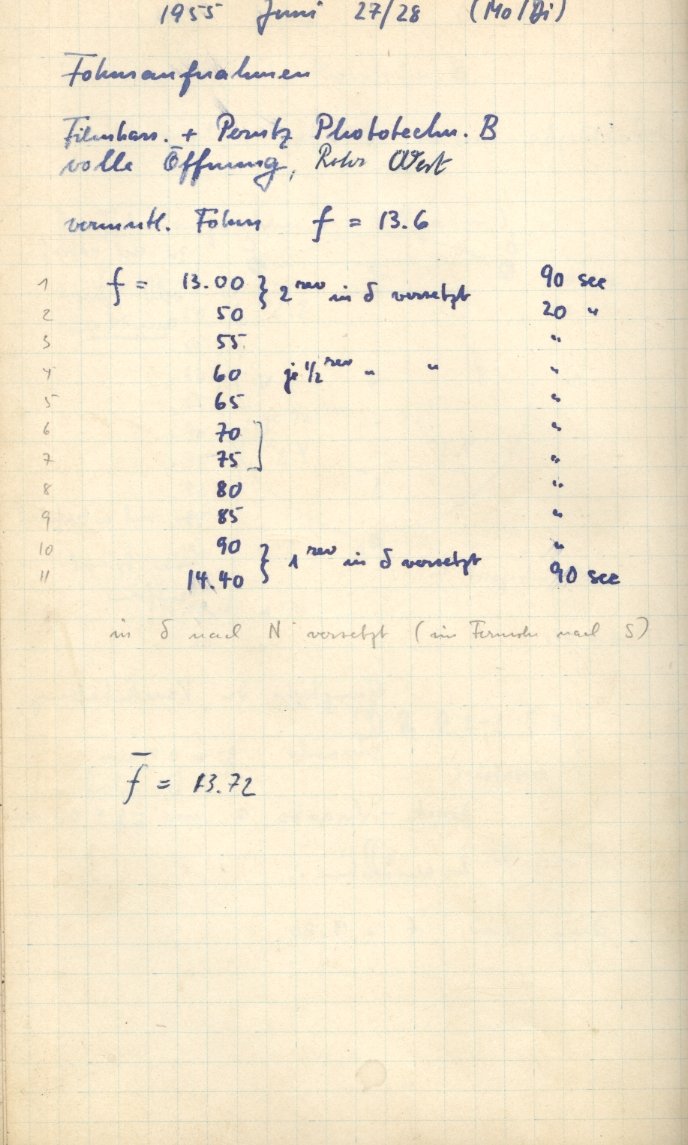 1955 Juni 27/28 (Mo/Di)
Fokusaufnahmen
Filmkass. + Perutz Phototechn. B
volle Öffnung, Rohr West
vermutl. Fokus f = 13.6
1 f = 13.00 } 2 rev in δ versetzt 90 sec
2 50 20 "
3 55 "
4 60 je 1/2 rev " " "
5 65 "
6 70 "
7 75 "
8 80 "
9 85 "
10 90 } 1 rev in δ versetzt "
11 14.40 90 sec
in δ nach N versetzt (im Fernrohr nach S)
f̅ = 13.72